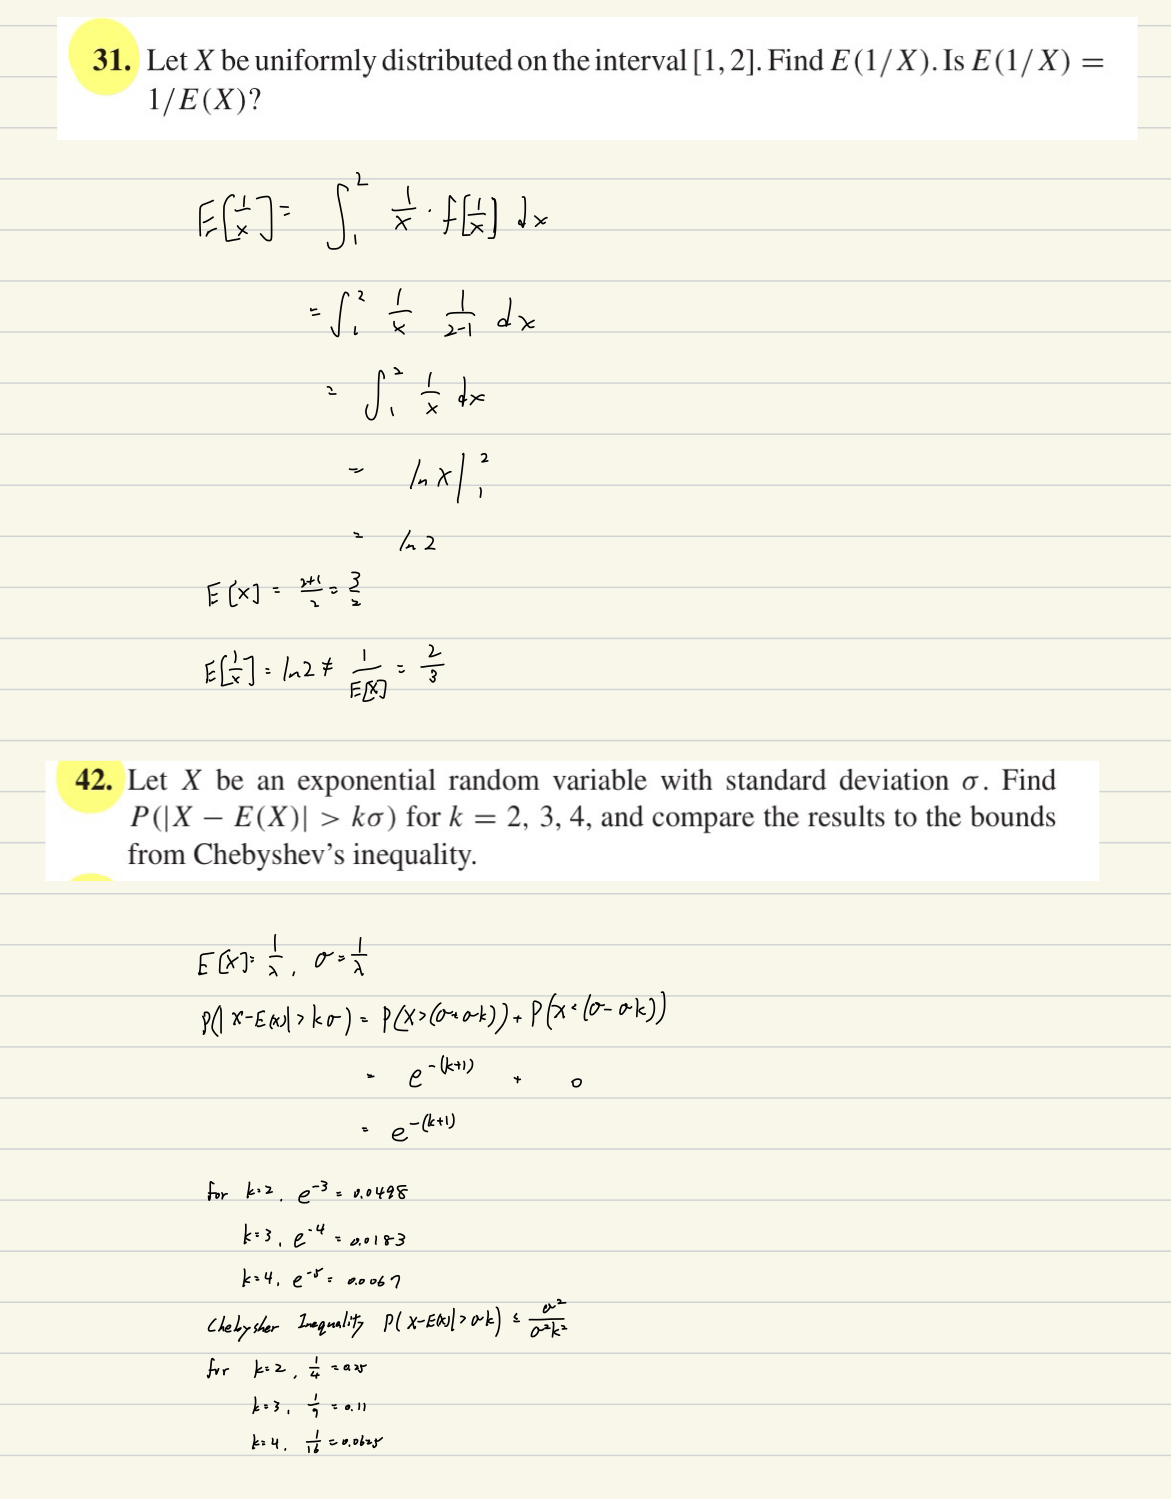 31. Let X be uniformly distributed on the interval [1, 2]. Find E(1/X). Is E(1/X) =
1/E(X)?
E[1/x] = ∫₁² 1/x · f[1/x] dx
= ∫₁² 1/x 1/(2-1) dx
= ∫₁² 1/x dx
= ln x |₁²
= ln 2
E[x] = (2+1)/2 = 3/2
E[1/x] = ln 2 ≠ 1/E[X] = 2/3
42. Let X be an exponential random variable with standard deviation σ. Find
P(|X − E(X)| > kσ) for k = 2, 3, 4, and compare the results to the bounds
from Chebyshev's inequality.
E[X] = 1/λ, σ = 1/λ
P(|X-E(x)| > kσ) = P(X > (σ+σk)) + P(X < (σ-σk))
= e^-(k+1) + 0
= e^-(k+1)
for k=2, e^-3 = 0.0498
k=3, e^-4 = 0.0183
k=4, e^-5 = 0.0067
Chebysher Inequality P(|X-E(x)| > σk) ≤ σ²/σ²k²
for k=2, 1/4 = 0.25
k=3, 1/9 = 0.11
k=4, 1/16 = 0.0625